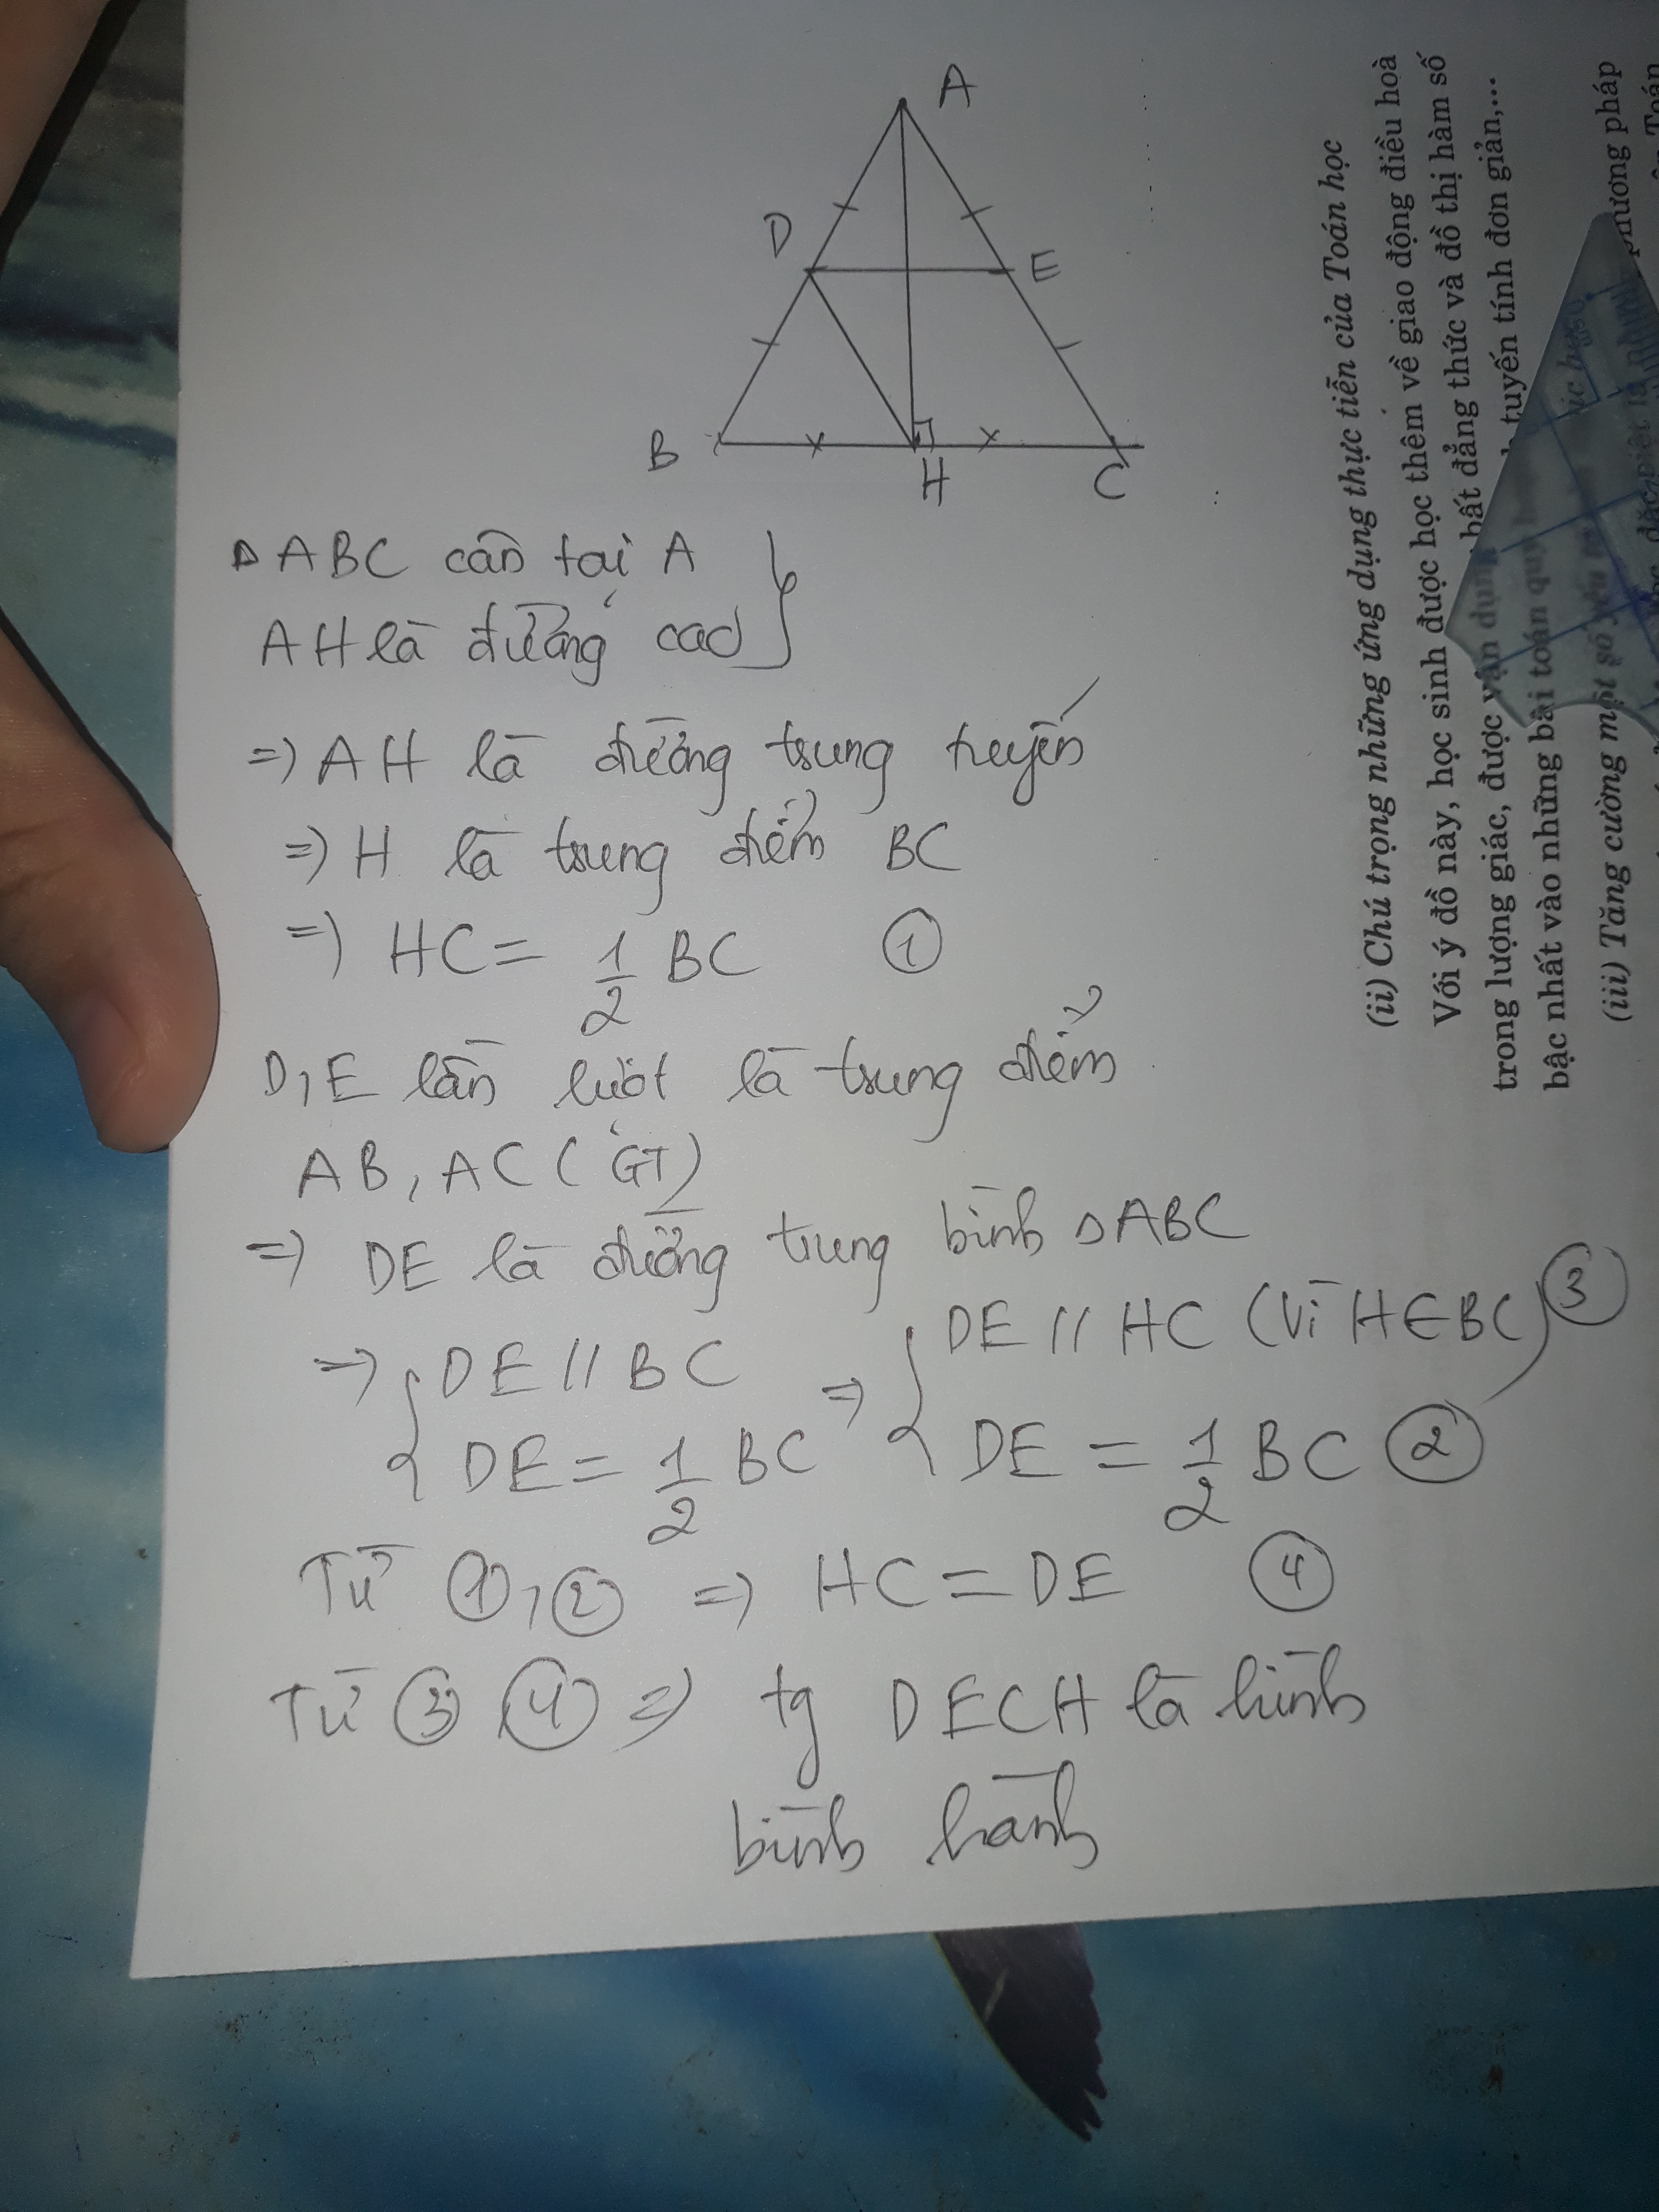 A
D
E
B
H
C
Δ ABC cân tại A
AH là đường cao
=) AH là đường trung tuyến
=) H là trung điểm BC
=) HC = 1/2 BC ①
D, E lần lượt là trung điểm
AB, AC (GT)
=) DE là đường trung bình Δ ABC
=) { DE // BC =) { DE // HC (Vì H ∈ BC) ③
DE = 1/2 BC DE = 1/2 BC ②
Từ ①, ② =) HC = DE ④
Từ ③ ④ =) tg DECH là hình
bình hành
(ii) Chú trọng những ứng dụng thực tiễn của Toán học
Với ý đồ này, học sinh được học thêm về giao động điều hoà
trong lượng giác, được vận dụng bất đẳng thức và đồ thị hàm số
bậc nhất vào những bài toán quy tuyến tính đơn giản,...
(iii) Tăng cường một số yếu phương pháp
Toán